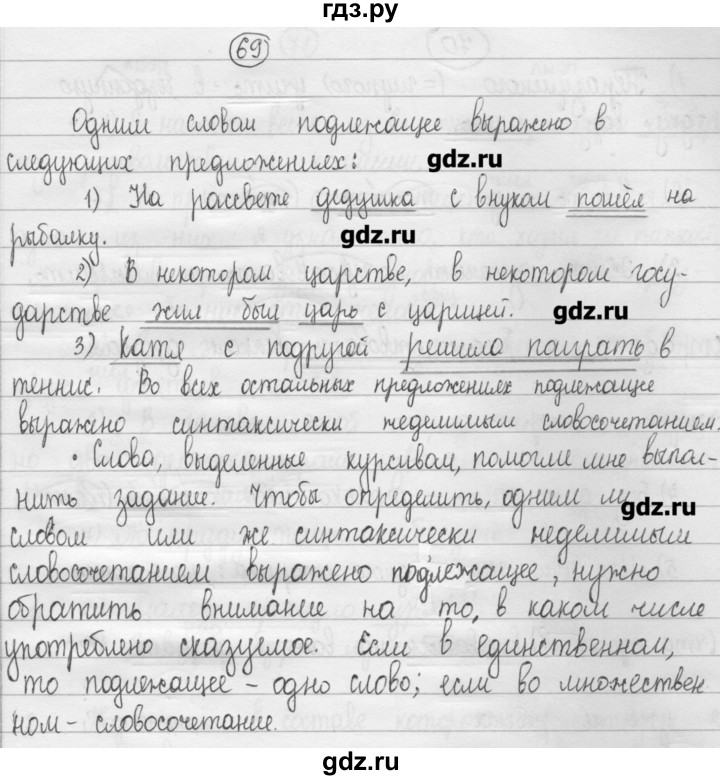 гдз.ру
69
Одним словом подлежащее выражено в
следующих предложениях: gdz.ru
1) На рассвете дедушка с внуком пошёл на
рыбалку. gdz.ru
2) В некотором царстве, в некотором госу-
дарстве жил был царь с царицей. gdz.ru
3) Катя с подругой решила поиграть в
теннис. Во всех остальных предложениях подлежащее
выражено синтаксически неделимым словосочетанием.
Слова, выделенные курсивом, помогли мне выпол-
нить задание. Чтобы определить, одним ли gdz.ru
словом или же синтаксически неделимым
словосочетанием выражено подлежащее, нужно
обратить внимание на то, в каком числе
употреблено сказуемое. Если в единственном,
то подлежащее - одно слово; если во множествен
ном - словосочетание.
gdz.ru